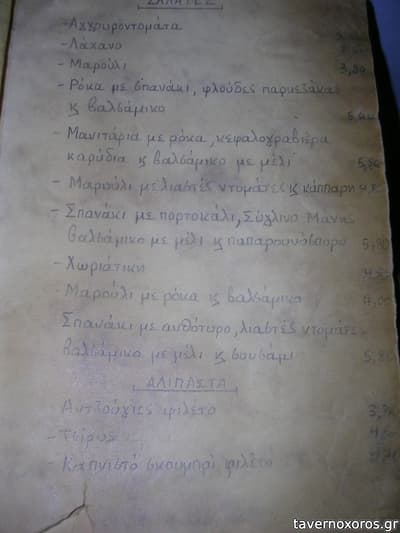 ΣΑΛΑΤΕΣ
- Αγγουροντομάτα
- Λάχανο
- Μαρούλι 3,80
- Ρόκα με σπανάκι, φλούδες παρμεζάνας
ς βαλσάμικο
- Μανιτάρια με ρόκα, κεφαλογραβιέρα
καρύδια ς βαλσάμικο με μέλι 5,80
- Μαρούλι με λιαστές ντομάτες ς κάππαρη
- Σπανάκι με πορτοκάλι, Σύγλινο Μάνης
βαλσάμικο με μέλι ς παπαρουνόσπορο 5,80
- Χωριάτικη
- Μαρούλι με ρόκα ς βαλσάμικο 4,00
Σπανάκι με ανθότυρο, λιαστές ντομάτες
βαλσάμικο με μέλι ς σουσάμι 5,80
ΑΛΙΠΑΣΤΑ
Αντζούγιες φιλέτο
- Τσίρος
- Καπνιστό σκουμπρί φιλέτο
tavernoxoros.gr